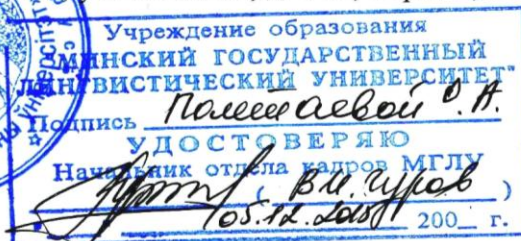 Учреждение образования
"МИНСКИЙ ГОСУДАРСТВЕННЫЙ
ЛИНГВИСТИЧЕСКИЙ УНИВЕРСИТЕТ"
Подпись О.А.
УДОСТОВЕРЯЮ
Начальник отдела кадров МГЛУ
( В.И. Чуров )
05.12. 200_ г.